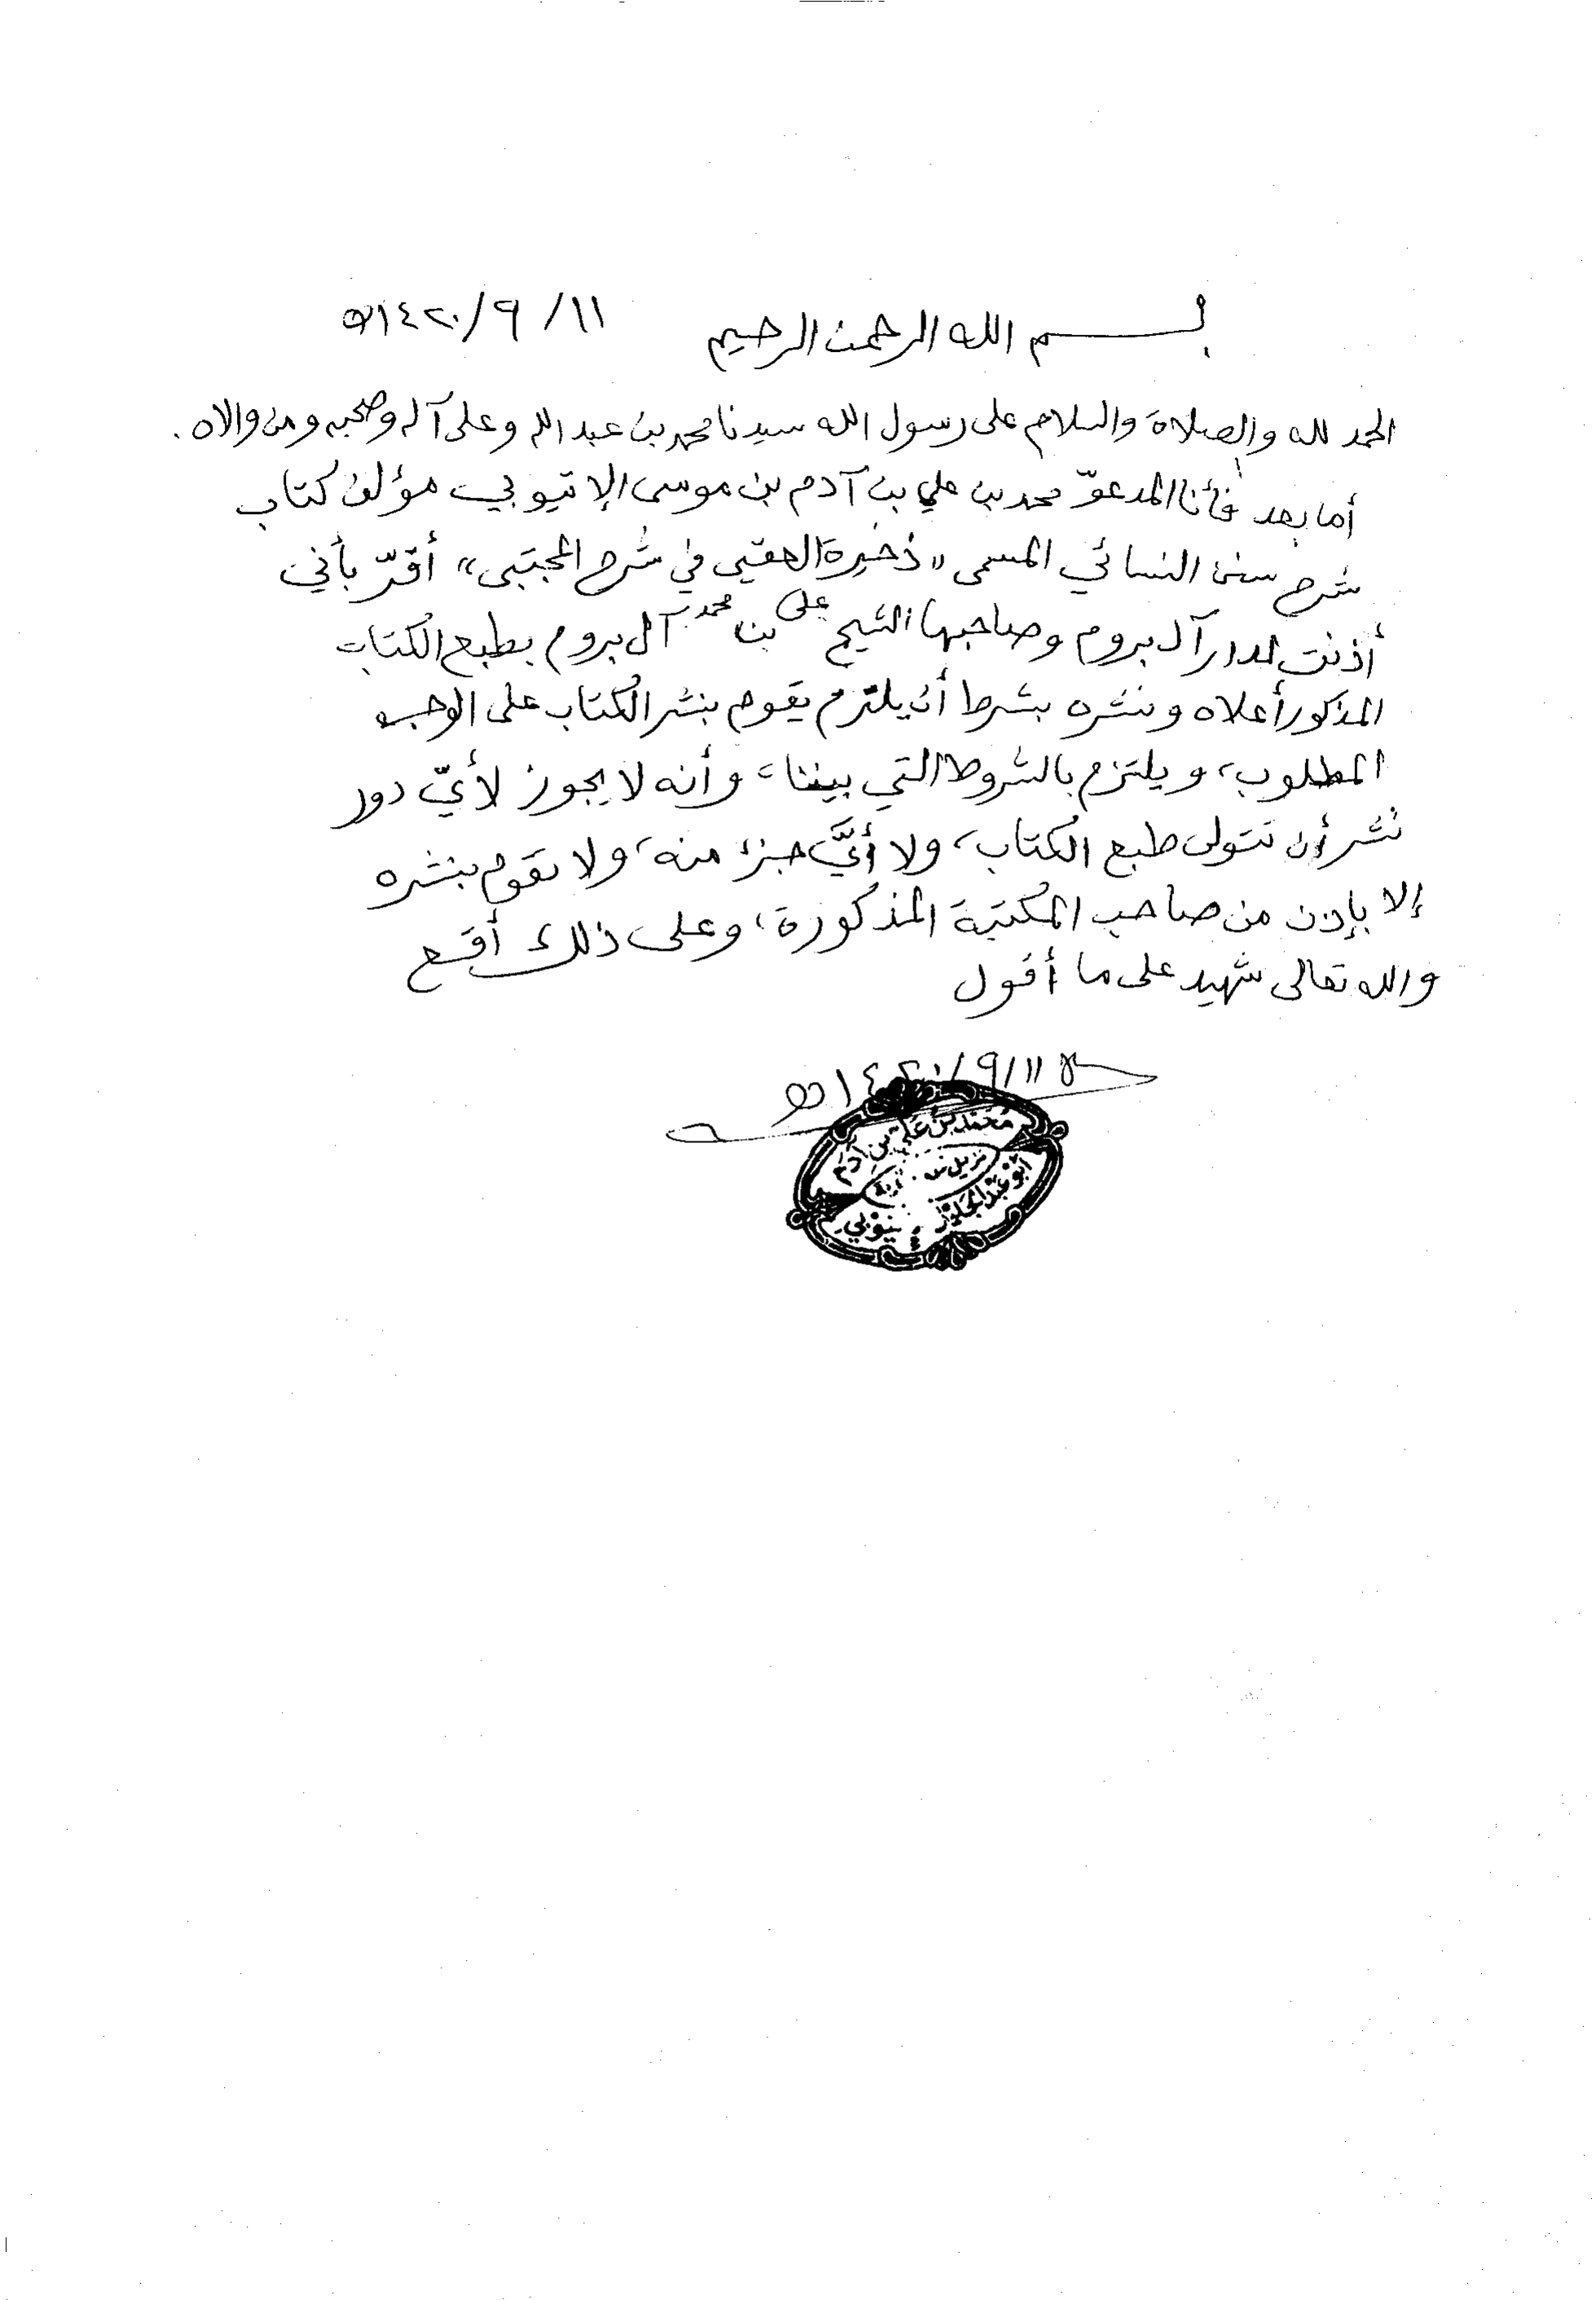 بسم الله الرحمن الرحيم ١١/٩/١٤٢٠ه
الحمد لله والصلاة والسلام على رسول الله سيدنا محمد بن عبد الله وعلى آله وصحبه ومن والاه.
أما بعد فأنا المدعوّ محمد بن علي بن آدم بن موسى الإتيوبي مؤلف كتاب
شرح سنن النسائي المسمى «ذخيرة العقبى في شرح المجتبى» أقرّ بأني
أذنت لدار آل بروم وصاحبها الشيخ على بن محمد آل بروم بطبع الكتاب
المذكور أعلاه ونشره بشرط أن يلتزم يقوم بنشر الكتاب على الوجه
المطلوب، ويلتزم بالشروط التي بيننا، وأنه لا يجوز لأيّ دور
نشر أن تتولى طبع الكتاب، ولا أيَّ جزء منه، ولا تقوم بنشره
إلا بإذن من صاحب المكتبة المذكورة، وعلى ذلك أوقع
والله تعالى شهيد على ما أقول
١١/٩/١٤٢٠ه
محمد بن علي بن آدم
نزيل مكة
أبو عبد الجليل